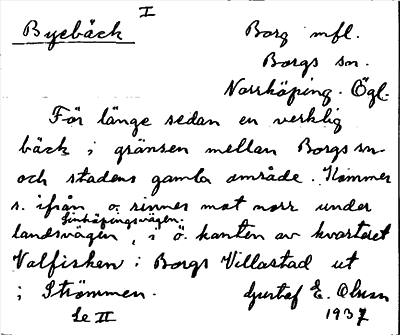 I
Byebäck
Borg mfl.
Borgs sn.
Norrköping. Ögl.
För länge sedan en verklig
bäck i gränsen mellan Borgs sn
och stadens gamla område. Kommer
s. ifrån o. rinner mot norr under
Linköpingsvägen.
landsvägen, i ö. kanten av kvarteret
Valfisken i Borgs Villastad ut
i Strömmen. Gustaf E. Olsson
Se II 1937